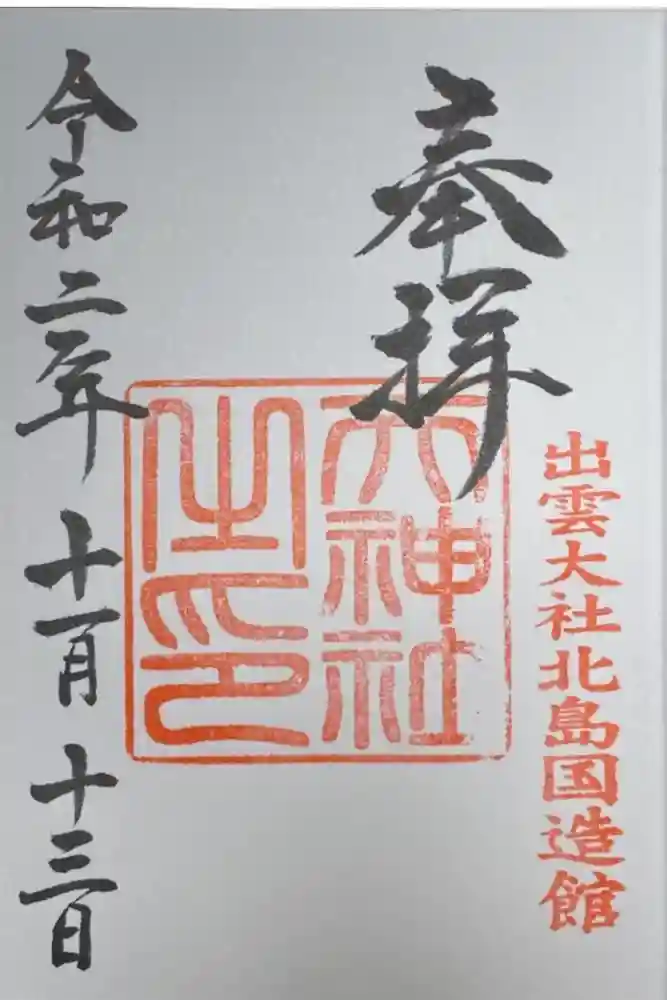 奉拝
出雲大社北島国造館
大神社
之印
令和二年十一月十三日